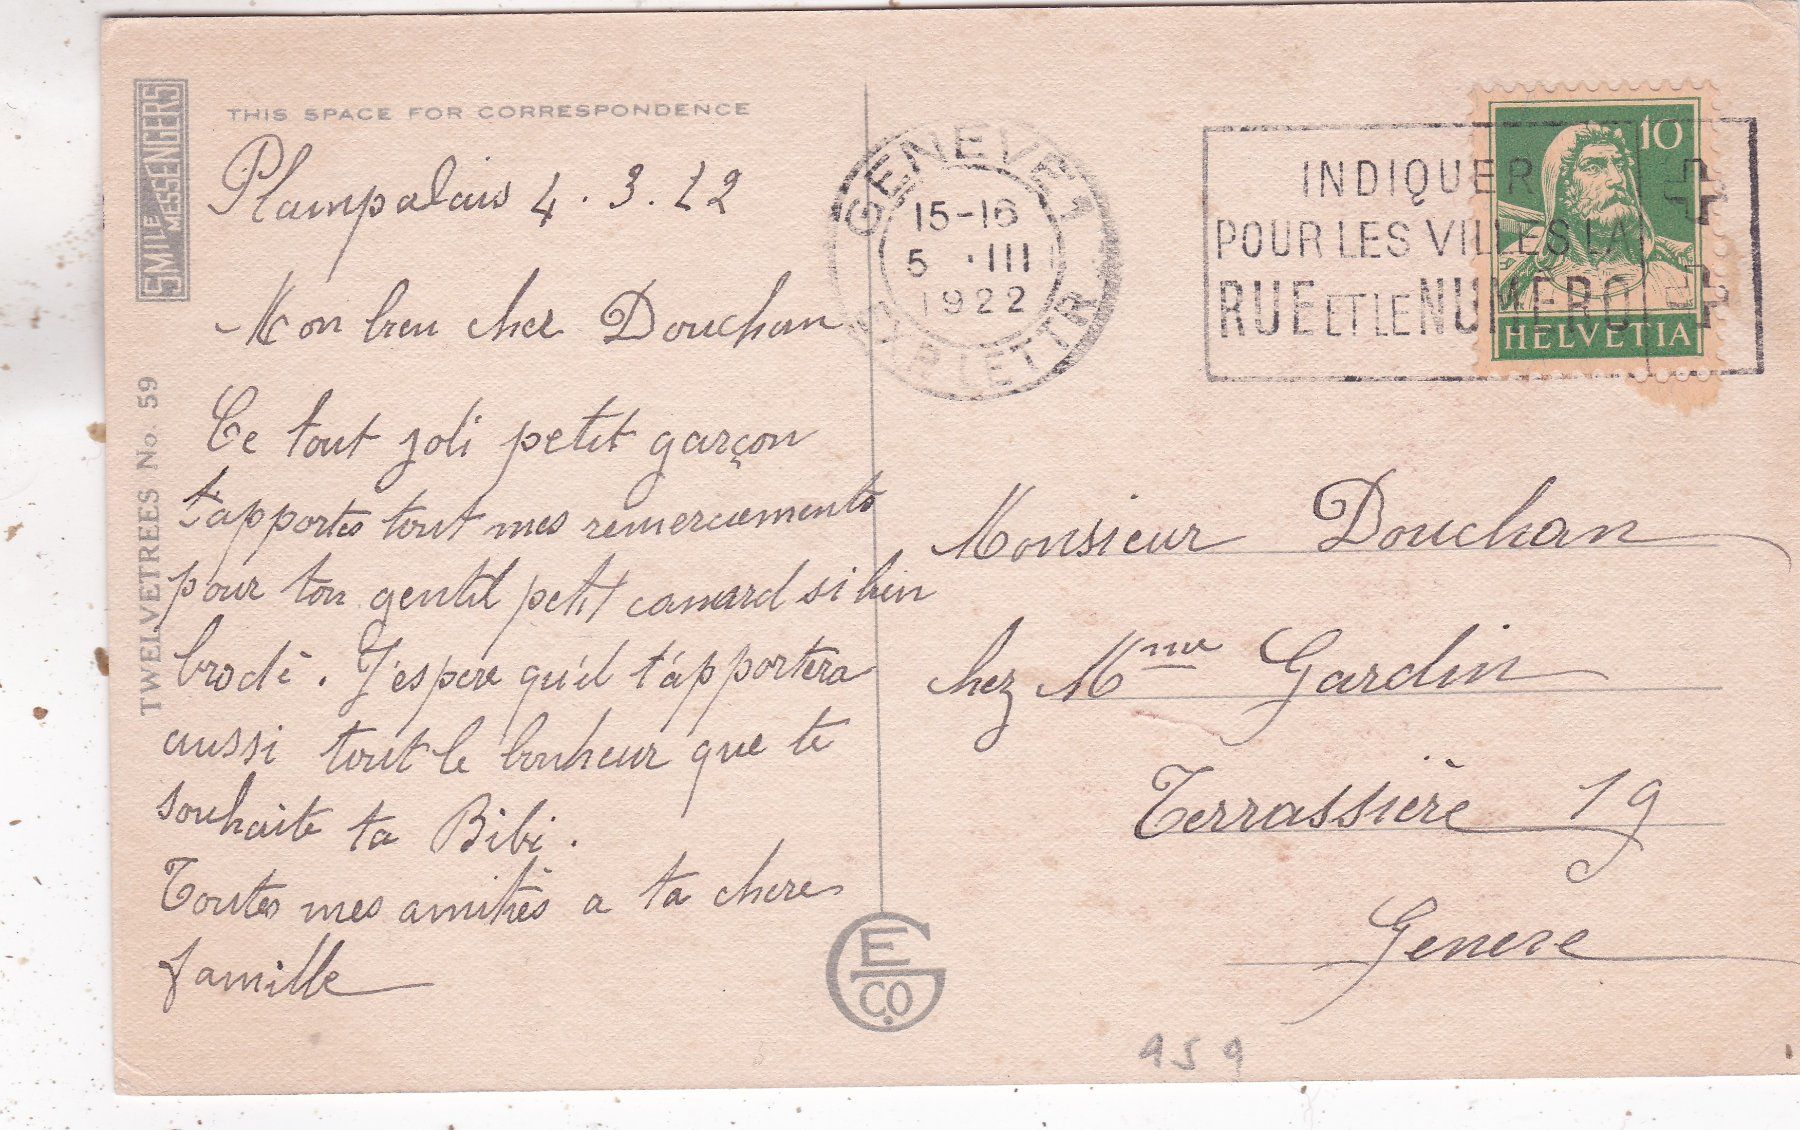 SMILE MESSENGERS
THIS SPACE FOR CORRESPONDENCE
TWELVETREES No. 59
Plainpalais 4.3.22
Mon bien cher Douchan
Ce tout joli petit garçon
t'apportes tout mes remerciements
pour ton gentil petit canard si bien
brodé. J'espere qu'il t'apportera
aussi tout le bonheur que te
souhaite ta Bibi.
Toutes mes amitiés a ta chere
famille
GENEVE 1
15-16
5 .III
1922
EXP. LETTR.
INDIQUER
POUR LES VILLES LA
RUE ET LE NUMERO
10
HELVETIA
Monsieur Douchan
chez Mme Gardin
Terrassière 19
Geneve
E G CO.
959